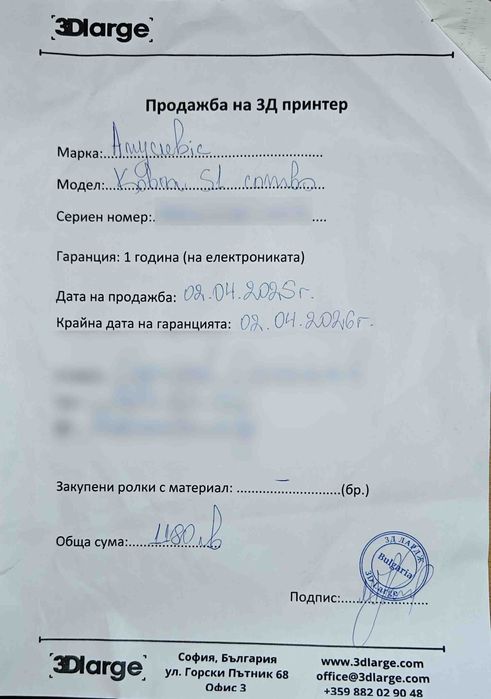 3Dlarge
Продажба на 3Д принтер
Марка: Anycubic
Модел: Kobra S1 combo
Сериен номер:
Гаранция: 1 година (на електрониката)
Дата на продажба: 02.04.2025г.
Крайна дата на гаранцията: 02.04.2026г.
Закупени ролки с материал: – (бр.)
Обща сума: 1180лв
ЗД ЛАРДЖ
Bulgaria
3D-Large
Подпис:
3Dlarge
София, България
ул. Горски Пътник 68
Офис 3
www.3dlarge.com
office@3dlarge.com
+359 882 02 90 48